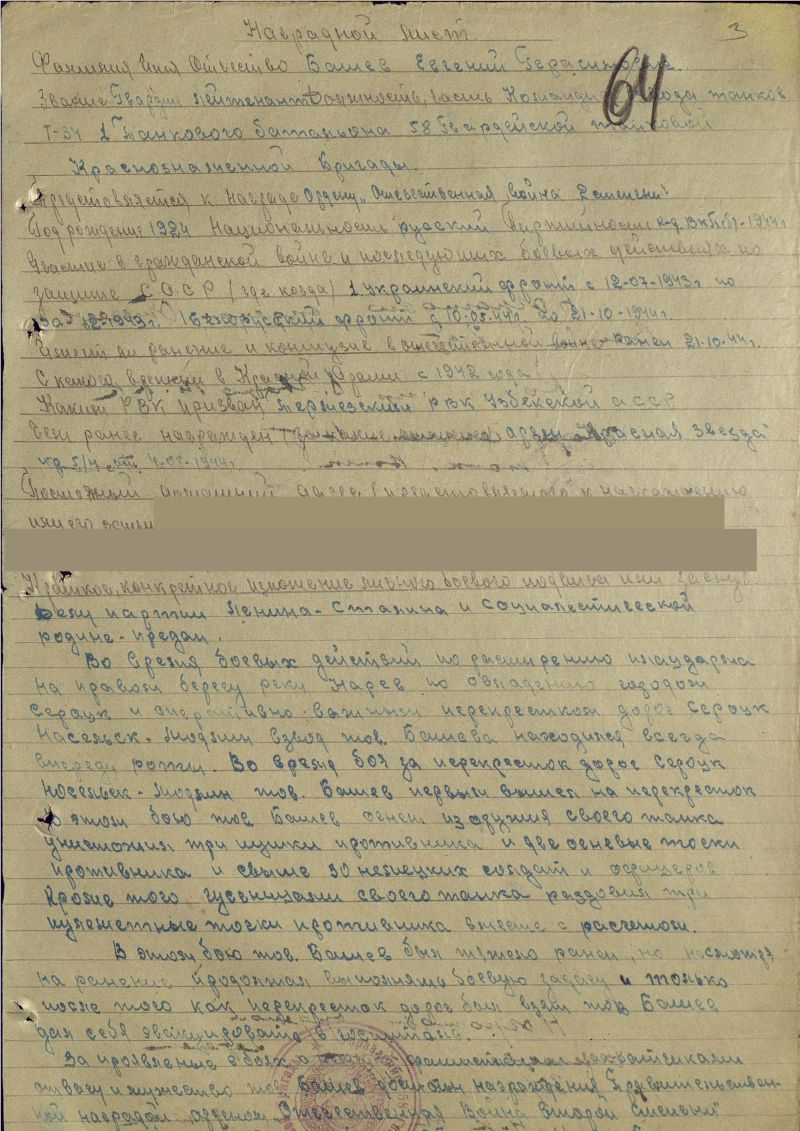 Наградной лист 3
Фамилия Имя Отчество Башев Евгений Герасимович.
64
Звание Гвардии Лейтенант Должность, часть Командир взвода танков
Т-34 1 Танкового батальона 58 Гвардейской танковой
Краснознаменной Бригады.
Представляется к награде Ордену „Отечественная война 2 степени"
Год рождение 1924 Национальность русский Партийность к-д. ВКП(б)-1944г
Участие в гражданской войне и последующих боевых действиях по
защите СССР (где когда) 1 Украинский фронт с 12-07-1943г по
12-1943г. 1 Белорусский фронт с 10.05.44г. до 21-10-1944г.
Имеет ли ранение и контузие в отечественной войне Ранен 21.10.44г.
С какого времени в Красной Армии с 1942 года.
Каким РВК призван Термезский РВК Узбекской АССР
Чем ранее награжден (за какие орден „Красная звезда"
от 4.08-1944г.
Постоянный домашний адрес (представляемого к награждению
или его семьи
Краткое, конкретное изложение личного боевого подвига или заслуг
Делу партии Ленина-Сталина и социалистической
родине-предан.
Во Время боевых действий по расширению плацдарма
на правом берегу реки Нарев по овладению городом
Сероцк и оперативно-важным перекрестком дорог Сероцк
Насельск-Модлин взвод тов. Башева находился всегда
впереди роты. Во время боя за перекресток дорог Сероцк
Носельск-Модлин тов. Башев первым вышел на перекресток
В этом бою тов. Башев огнем из орудия своего танка
уничтожил три пушки противника и две огневые точки
противника и свыше 30 немецких солдат и офицеров
Кроме того гусеницами своего танка раздовил три
пулеметные точки противника вместе с расчетом.
В этом бою тов. Башев был тяжело ранен, но несмотря-
на ранение продолжал выполнять боевую задачу и только
после того как перекресток дорог был взят тов Башев
дал себя эвакуировать в госпиталь.
За проявленые в боях с захватчиками
отвагу и мужество тов. Башев достоин награждения Правительствен-
ной наградой орденом „Отечественная Война второй степени"